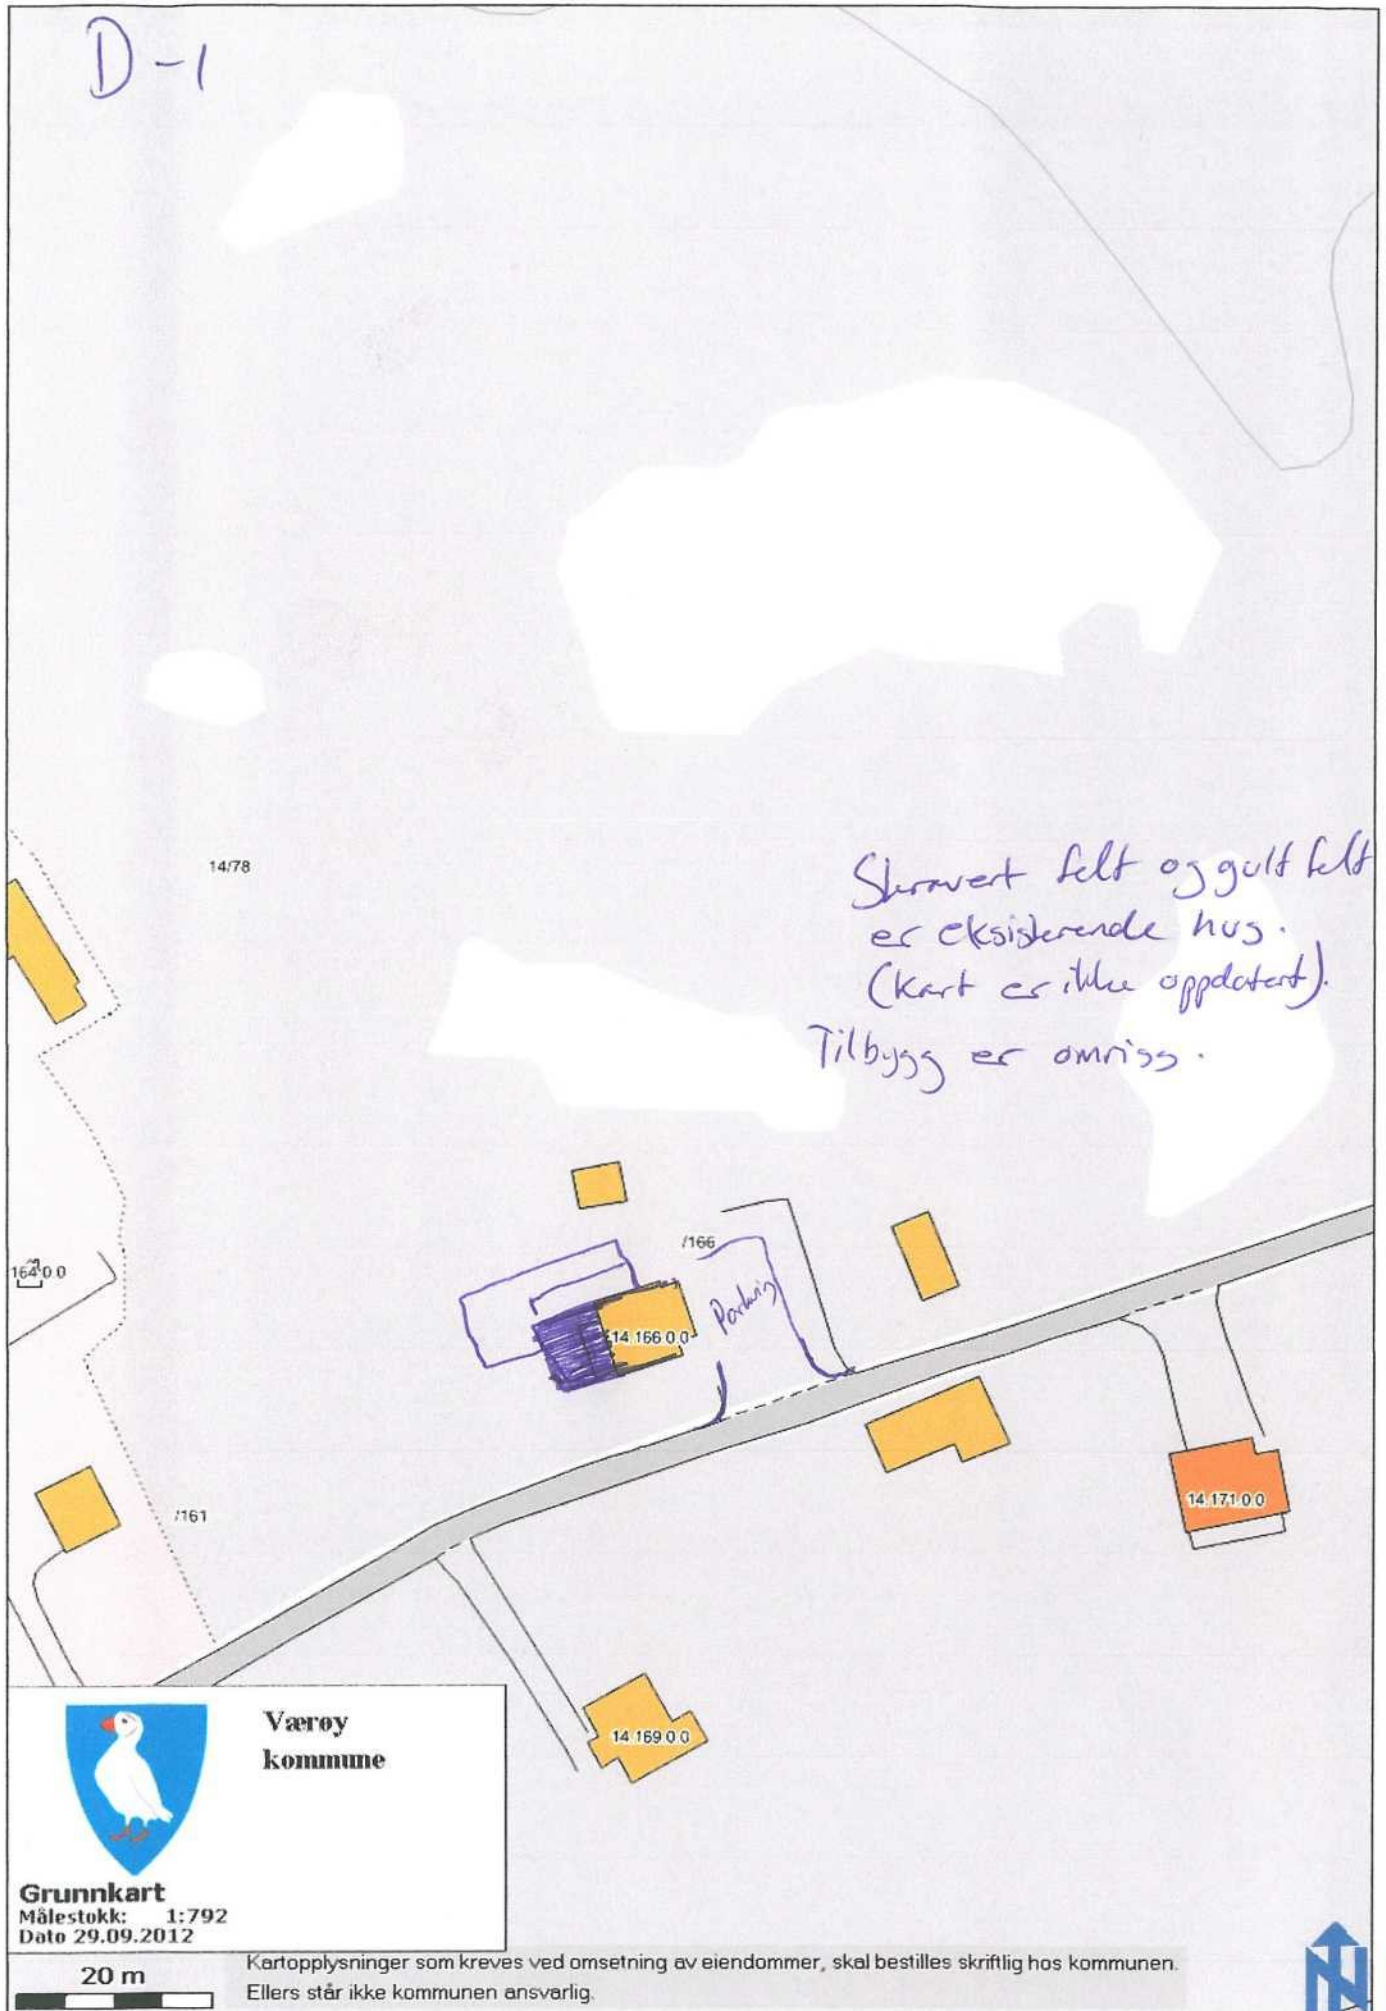 D-1
14/78
Skravert felt og gult felt
er eksisterende hus.
(Kart er ikke oppdatert).
Tilbygg er omriss.
/166
164.0.0
14.166.0.0
Parkering
/161
14.171.0.0
14.169.0.0
Værøy
kommune
Grunnkart
Målestokk: 1:792
Dato 29.09.2012
20 m
Kartopplysninger som kreves ved omsetning av eiendommer, skal bestilles skriftlig hos kommunen.
Ellers står ikke kommunen ansvarlig.
N